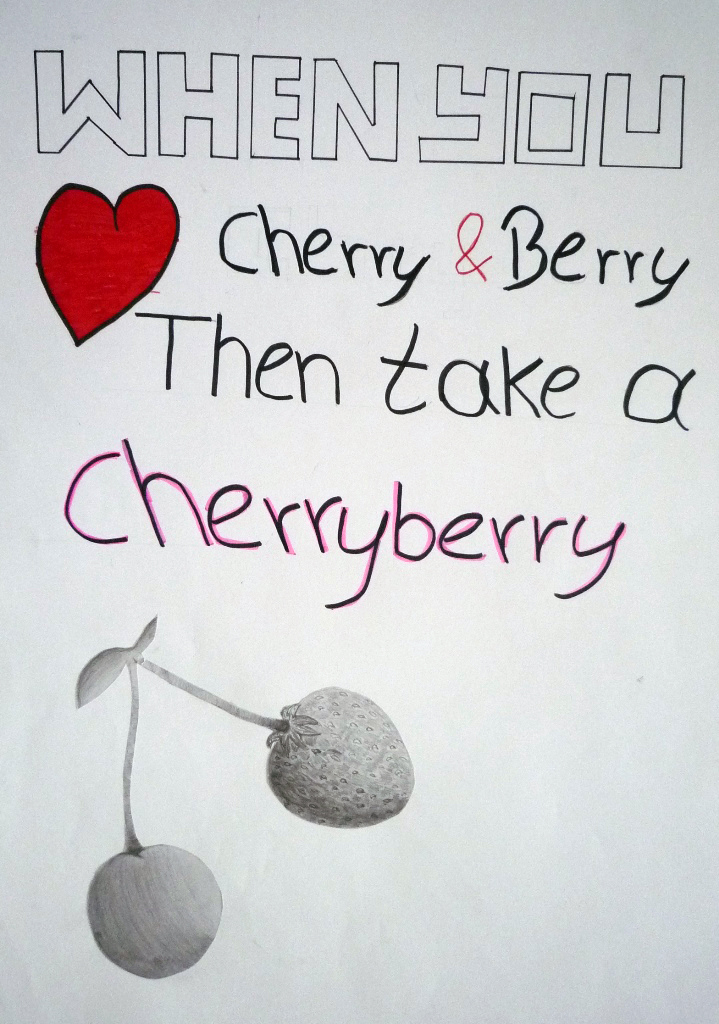 WHEN YOU
Cherry & Berry
Then take a
Cherryberry